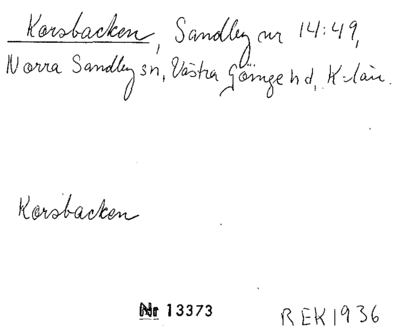 Korsbacken, Sandby nr 14:49,
Norra Sandby sn, Västra Göinge hd, K-län.
Korsbacken
Nr 13373
REK 1936